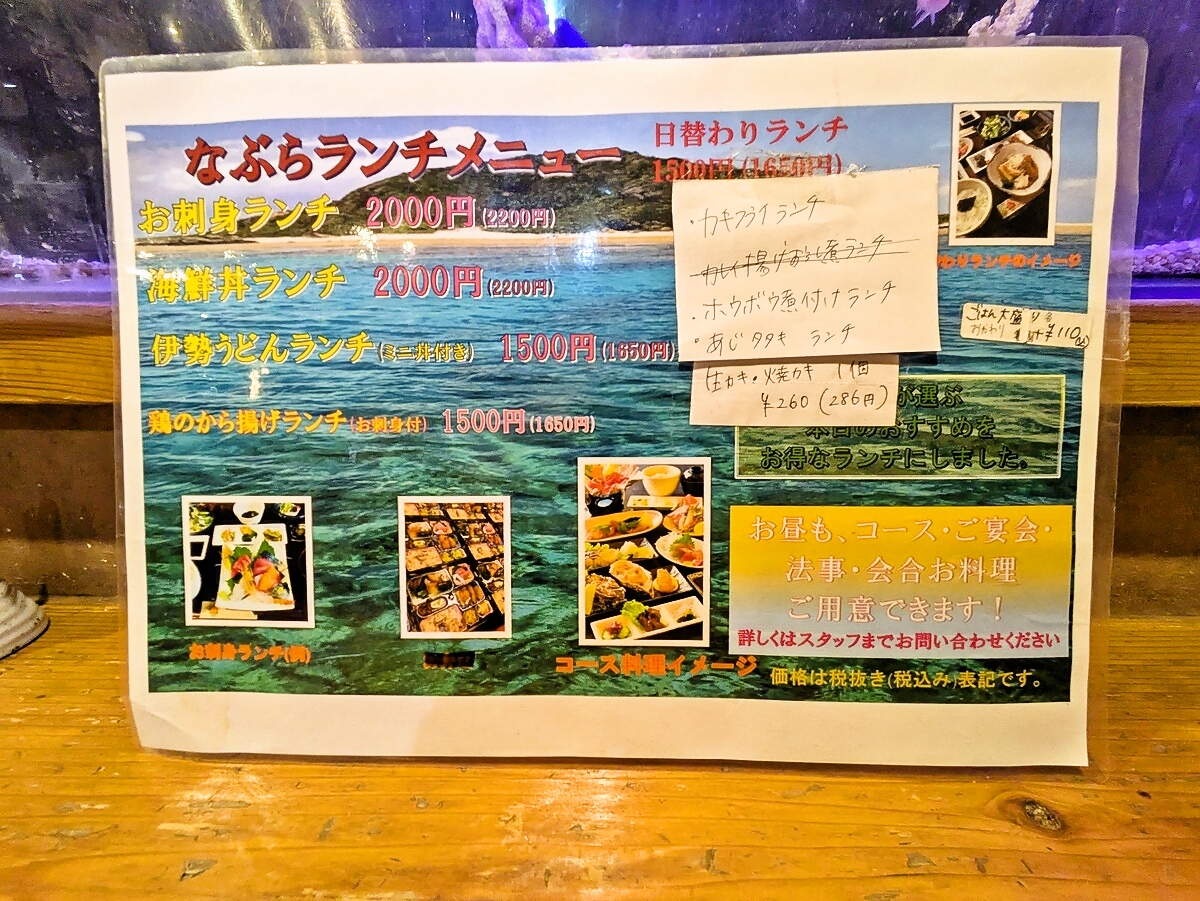 なぶらランチメニュー
お刺身ランチ 2000円(2200円)
海鮮丼ランチ 2000円(2200円)
伊勢うどんランチ(ミニ丼付き) 1500円(1650円)
鶏のから揚げランチ(お刺身付) 1500円(1650円)
お刺身ランチ(例)
コース料理イメージ
日替わりランチ
1500円(1650円)
・カキフライランチ
カレイ揚げおろし煮ランチ
・ホウボウ煮付けランチ
・あじタタキ ランチ
生カキ・焼カキ 1個
¥260(286円)
わりランチのイメージ
ごはん大盛り
おかわり ¥110
が選ぶ
本日のおすすめを
お得なランチにしました。
お昼も、コース・ご宴会・
法事・会合お料理
ご用意できます！
詳しくはスタッフまでお問い合わせください
価格は税抜き(税込み)表記です。